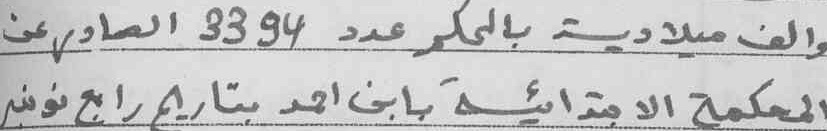 والف ميلادية بالحكم عدد 3394 الصادر عن
المحكمة الابتدائية بابن احمد بتاريخ رابع نونبر